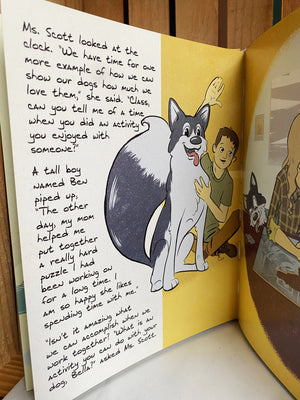 Ms. Scott looked at the
clock. "We have time for one
more example of how we can
show our dogs how much we
love them," she said. "Class,
can you tell me of a time
when you did an activity
you enjoyed with
someone?"
A tall boy
named Ben
piped up,
"The other
day, my mom
helped me
put together
a really hard
puzzle I had
been working on
for a long time. I
am so happy she likes
spending time with me."
"Isn't it amazing what
we can accomplish when we
work together? What is an
activity you can do with your
dog, Bella?" asked Ms. Scott.